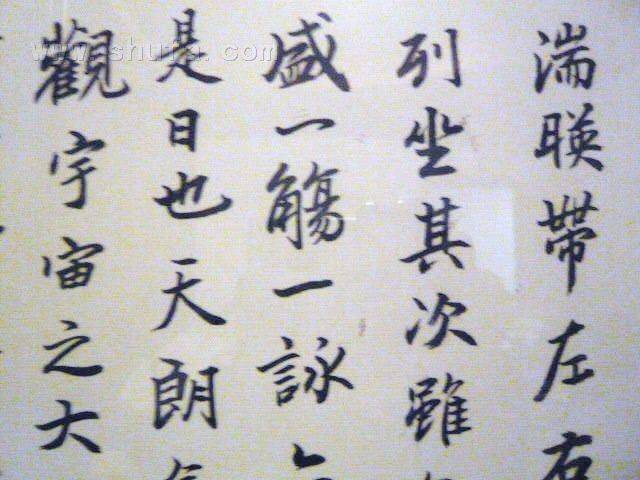 湍暎帶左右
列坐其次雖
盛一觴一詠
是日也天朗
觀宇宙之大